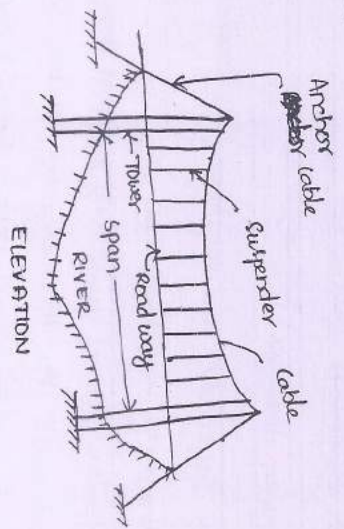 Anchor
cable
Cable
Suspender
Tower
Road way
Span
RIVER
ELEVATION